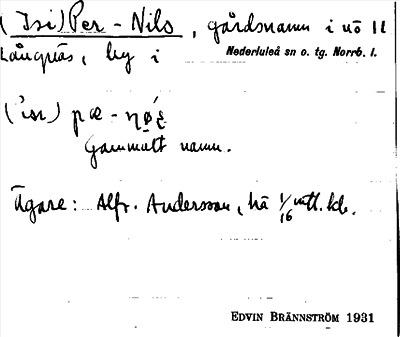 (Isi)Per-Nils, gårdsnamn i nö 11
Långnäs, by i Nederluleå sn o. tg. Norrb. l.
Gammalt namn.
Ägare: Alfr. Andersson, há 1/16 mtl.
EDVIN BRÄNNSTRÖM 1931